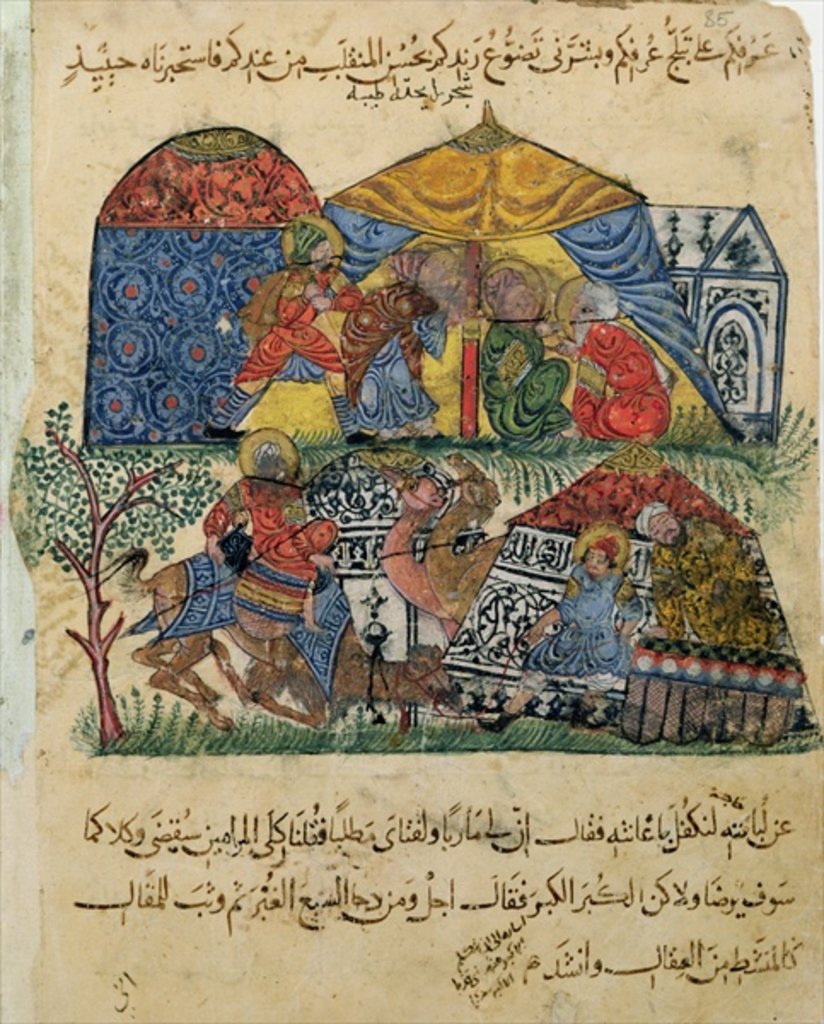 85
عَرفكم على تبلّج عُرفكم وبشّرنى تضوُّعُ رَندِكم بحُسن المنقلب من عندكم فاستخبرناه حينيذٍ
شجر رايحته طيبه
حاجة
عن لُبانته لنتكفّل باعانته فقال انّ لى ماربًا ولفتاى مَطلبًا فقُلنا كلى المرامين سيُقضى وكلاكما
سوف يرضا ولاكن الكُبرَ الكبرَ فقال اجل ومن دحا السبع الغُبرَ ثم وثب للمقال
كالمنشط من العِقال وانشد